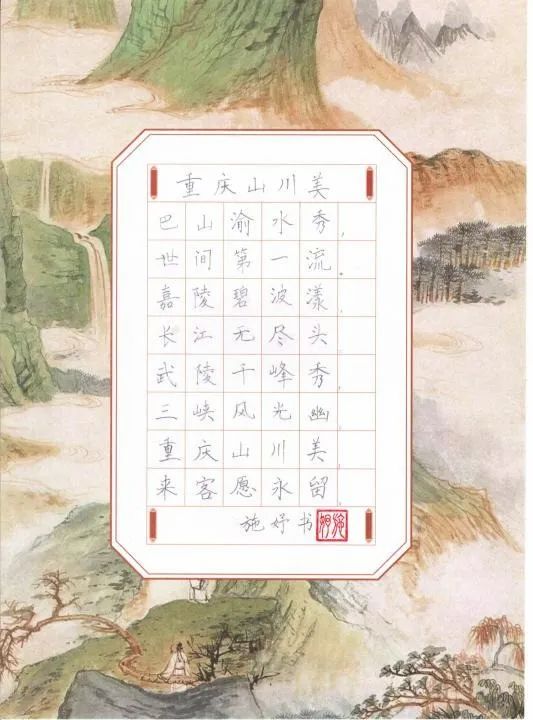 重庆山川美
巴山渝水秀，
世间第一流。
嘉陵碧波漾，
长江无尽头。
武陵千峰秀，
三峡风光幽。
重庆山川美，
来客愿永留。
施妤书